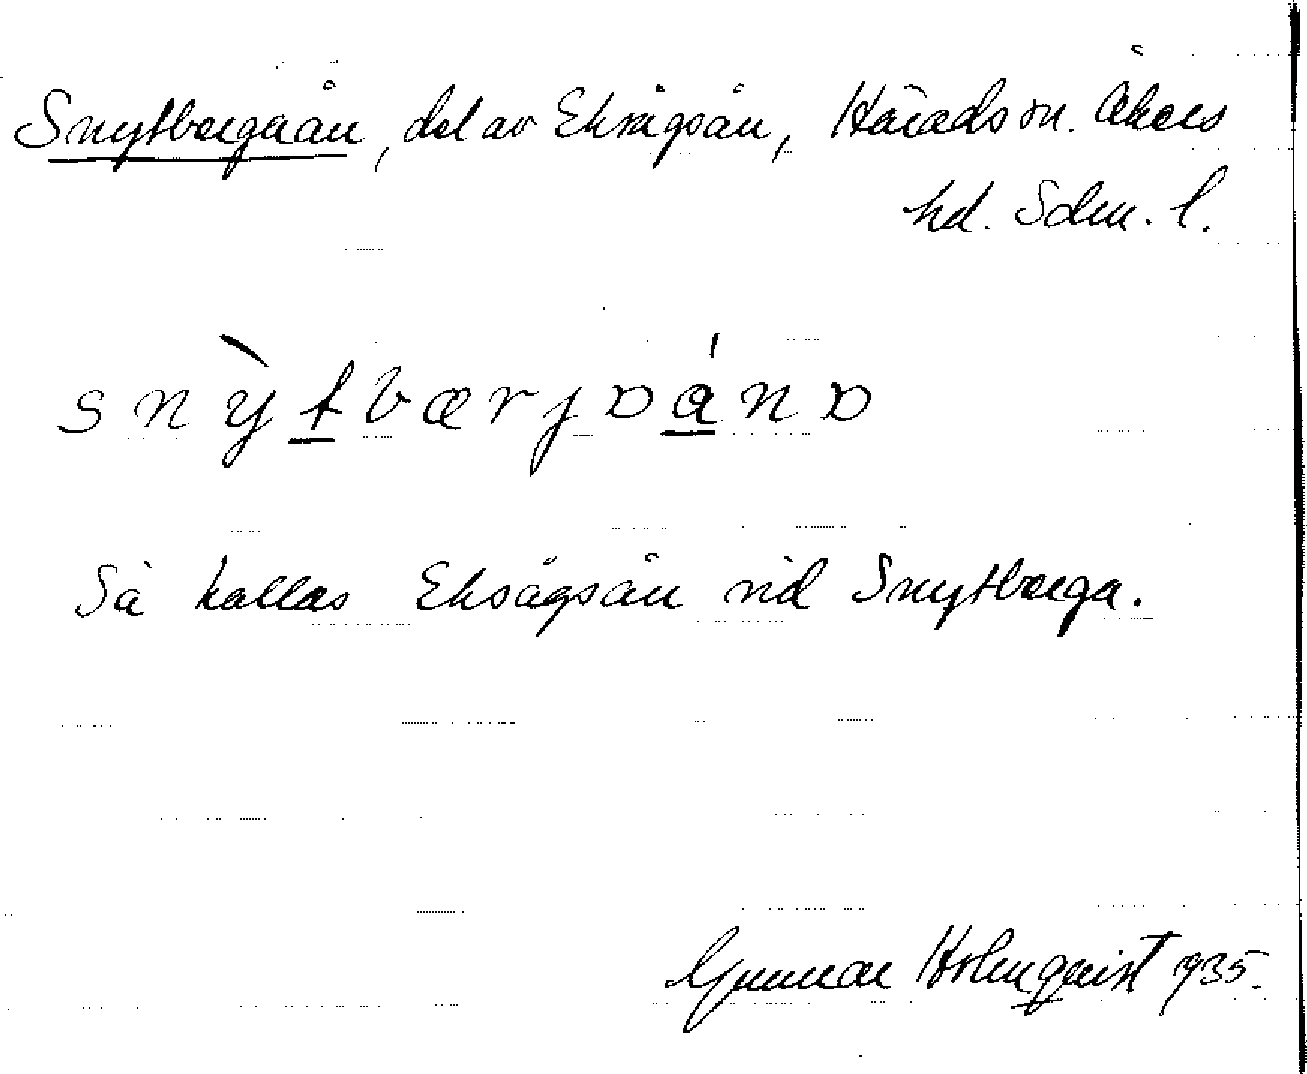 Snytbergaån, del av Eksågsån, Härads sn. Åkers
hd. Sdm. l.
snỳtbærjɒánɒ
Så kallas Eksågsån vid Snytberga.
Gunnar Holmqvist 1935.